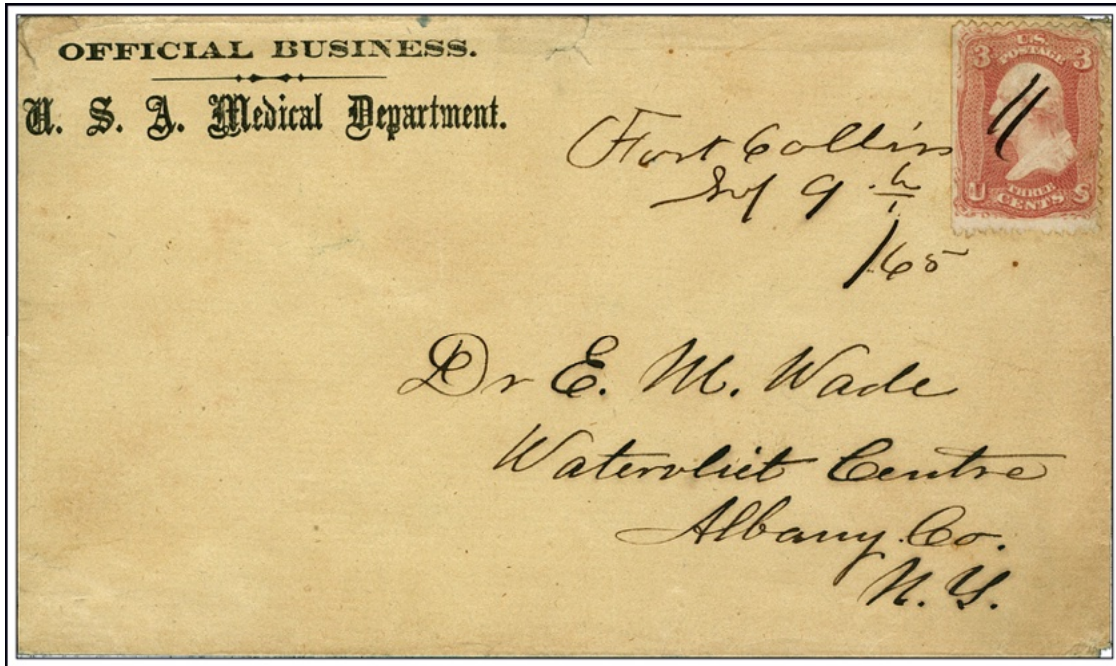 OFFICIAL BUSINESS.
U. S. A. Medical Department.
U.S.
POSTAGE
3 3
U THREE S
CENTS
Fort Collins
9
/65
Dr E. M. Wade
Watervliet Centre
Albany Co.
N. Y.